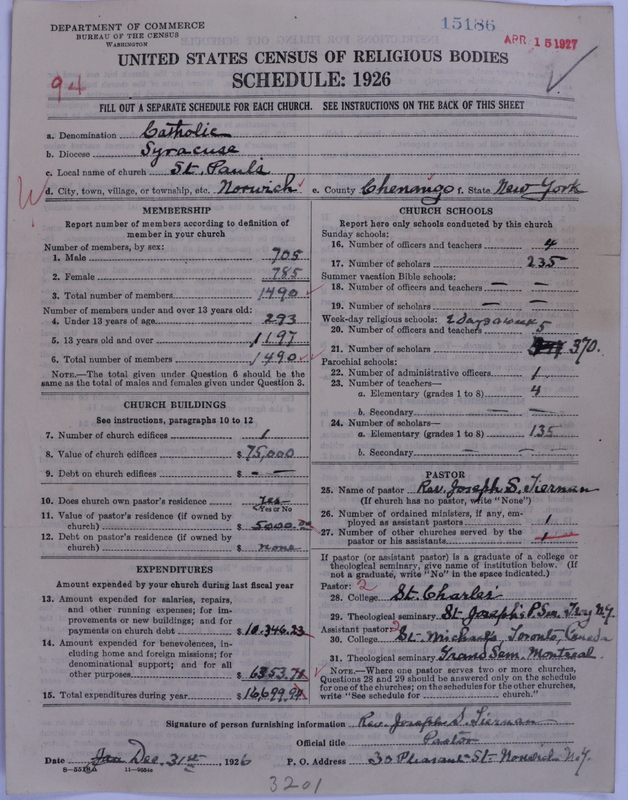 DEPARTMENT OF COMMERCE
BUREAU OF THE CENSUS
WASHINGTON
15186
APR 15 1927
UNITED STATES CENSUS OF RELIGIOUS BODIES
94
SCHEDULE: 1926
FILL OUT A SEPARATE SCHEDULE FOR EACH CHURCH. SEE INSTRUCTIONS ON THE BACK OF THIS SHEET
a. Denomination Catholic
b. Diocese Syracuse
c. Local name of church St. Paul's
d. City, town, village, or township, etc. Norwich e. County Chenango f. State New York
MEMBERSHIP
Report number of members according to definition of
member in your church
Number of members, by sex:
1. Male 705
2. Female 785
3. Total number of members 1490
Number of members under and over 13 years old:
4. Under 13 years of age 293
5. 13 years old and over 1197
6. Total number of members 1490
NOTE.—The total given under Question 6 should be
same as the total of males and females given under Question 3.
CHURCH BUILDINGS
See instructions, paragraphs 10 to 12
7. Number of church edifices 1
8. Value of church edifices $ 75,000
9. Debt on church edifices $ — —
10. Does church own pastor's residence Yes
Yes or No
11. Value of pastor's residence (if owned by
church) $ 5000.00
12. Debt on pastor's residence (if owned by
church) $ none
EXPENDITURES
Amount expended by your church during last fiscal year
13. Amount expended for salaries, repairs,
and other running expenses; for im-
provements or new buildings; and for
payments on church debt $ 10.346.23
14. Amount expended for benevolences, in-
cluding home and foreign missions; for
denominational support; and for all
other purposes $ 6353.71
15. Total expenditures during year $ 16,699.94
CHURCH SCHOOLS
Report here only schools conducted by this church
Sunday schools:
16. Number of officers and teachers 4
17. Number of scholars 235
Summer vacation Bible schools:
18. Number of officers and teachers — —
19. Number of scholars — —
Week-day religious schools: 2 days a week
20. Number of officers and teachers 5
21. Number of scholars 370.
Parochial schools:
22. Number of administrative officers 1
23. Number of teachers—
a. Elementary (grades 1 to 8) 4
b. Secondary — —
24. Number of scholars—
a. Elementary (grades 1 to 8) 135
b. Secondary — —
PASTOR
25. Name of pastor Rev. Joseph S. Tiernan
(If church has no pastor, write "None")
26. Number of ordained ministers, if any, em-
ployed as assistant pastors 1
27. Number of other churches served by the
pastor or his assistants 1
If pastor (or assistant pastor) is a graduate of a college or
theological seminary, give name of institution below. (If
not a graduate, write "No" in the space indicated.)
Pastor: 2
28. College St. Charles
29. Theological seminary St. Joseph's P. Sem. Troy N.Y.
Assistant pastor: 2
30. College St. Michael's, Toronto, Canada
31. Theological seminary Grand Sem. Montreal
NOTE.—Where one pastor serves two or more churches,
Questions 28 and 29 should be answered only on the schedule
for one of the churches; on the schedules for the other churches,
write "See schedule for church."
Signature of person furnishing information Rev. Joseph S. Tiernan
Official title Pastor
Date Jan Dec. 31st, 1926 P. O. Address 30 Pleasant St. Norwich N.Y.
8—5518A 11—9551a
3201